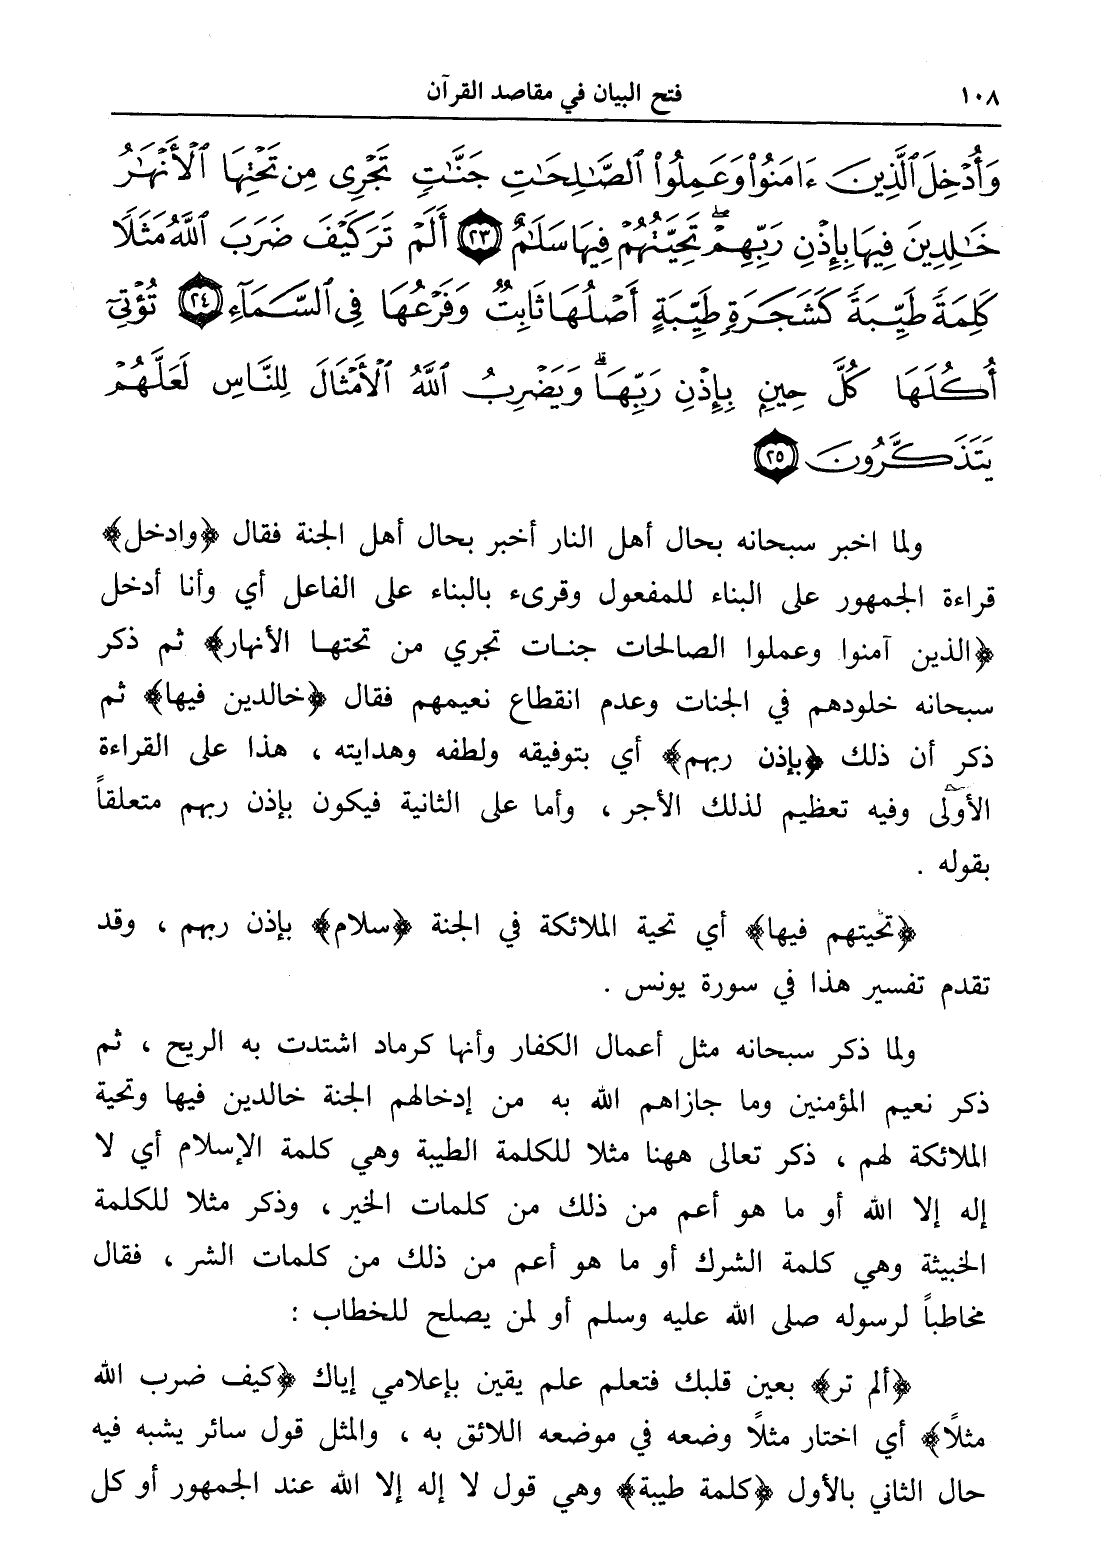 ١٠٨ فتح البيان في مقاصد القرآن
وَأُدْخِلَ ٱلَّذِينَ ءَامَنُوا۟ وَعَمِلُوا۟ ٱلصَّـٰلِحَـٰتِ جَنَّـٰتٍ تَجْرِى مِن تَحْتِهَا ٱلْأَنْهَـٰرُ
خَـٰلِدِينَ فِيهَا بِإِذْنِ رَبِّهِمْ ۖ تَحِيَّتُهُمْ فِيهَا سَلَـٰمٌ ٢٣ أَلَمْ تَرَ كَيْفَ ضَرَبَ ٱللَّهُ مَثَلًا
كَلِمَةً طَيِّبَةً كَشَجَرَةٍ طَيِّبَةٍ أَصْلُهَا ثَابِتٌ وَفَرْعُهَا فِى ٱلسَّمَآءِ ٢٤ تُؤْتِىٓ
أُكُلَهَا كُلَّ حِينٍۭ بِإِذْنِ رَبِّهَا ۗ وَيَضْرِبُ ٱللَّهُ ٱلْأَمْثَالَ لِلنَّاسِ لَعَلَّهُمْ
يَتَذَكَّرُونَ ٢٥
ولما اخبر سبحانه بحال أهل النار أخبر بحال أهل الجنة فقال ﴿وادخل﴾
قراءة الجمهور على البناء للمفعول وقرىء بالبناء على الفاعل أي وأنا أدخل
﴿الذين آمنوا وعملوا الصالحات جنات تجري من تحتها الأنهار﴾ ثم ذكر
سبحانه خلودهم في الجنات وعدم انقطاع نعيمهم فقال ﴿خالدين فيها﴾ ثم
ذكر أن ذلك ﴿بإذن ربهم﴾ أي بتوفيقه ولطفه وهدايته ، هذا على القراءة
الأولى وفيه تعظيم لذلك الأجر ، وأما على الثانية فيكون بإذن ربهم متعلقاً
بقوله .
﴿تحيتهم فيها﴾ أي تحية الملائكة في الجنة ﴿سلام﴾ بإذن ربهم ، وقد
تقدم تفسير هذا في سورة يونس .
ولما ذكر سبحانه مثل أعمال الكفار وأنها كرماد اشتدت به الريح ، ثم
ذكر نعيم المؤمنين وما جازاهم الله به من إدخالهم الجنة خالدين فيها وتحية
الملائكة لهم ، ذكر تعالى ههنا مثلا للكلمة الطيبة وهي كلمة الإسلام أي لا
إله إلا الله أو ما هو أعم من ذلك من كلمات الخير ، وذكر مثلا للكلمة
الخبيثة وهي كلمة الشرك أو ما هو أعم من ذلك من كلمات الشر ، فقال
مخاطباً لرسوله صلى الله عليه وسلم أو لمن يصلح للخطاب :
﴿ألم تر﴾ بعين قلبك فتعلم علم يقين بإعلامي إياك ﴿كيف ضرب الله
مثلًا﴾ أي اختار مثلًا وضعه في موضعه اللائق به ، والمثل قول سائر يشبه فيه
حال الثاني بالأول ﴿كلمة طيبة﴾ وهي قول لا إله إلا الله عند الجمهور أو كل